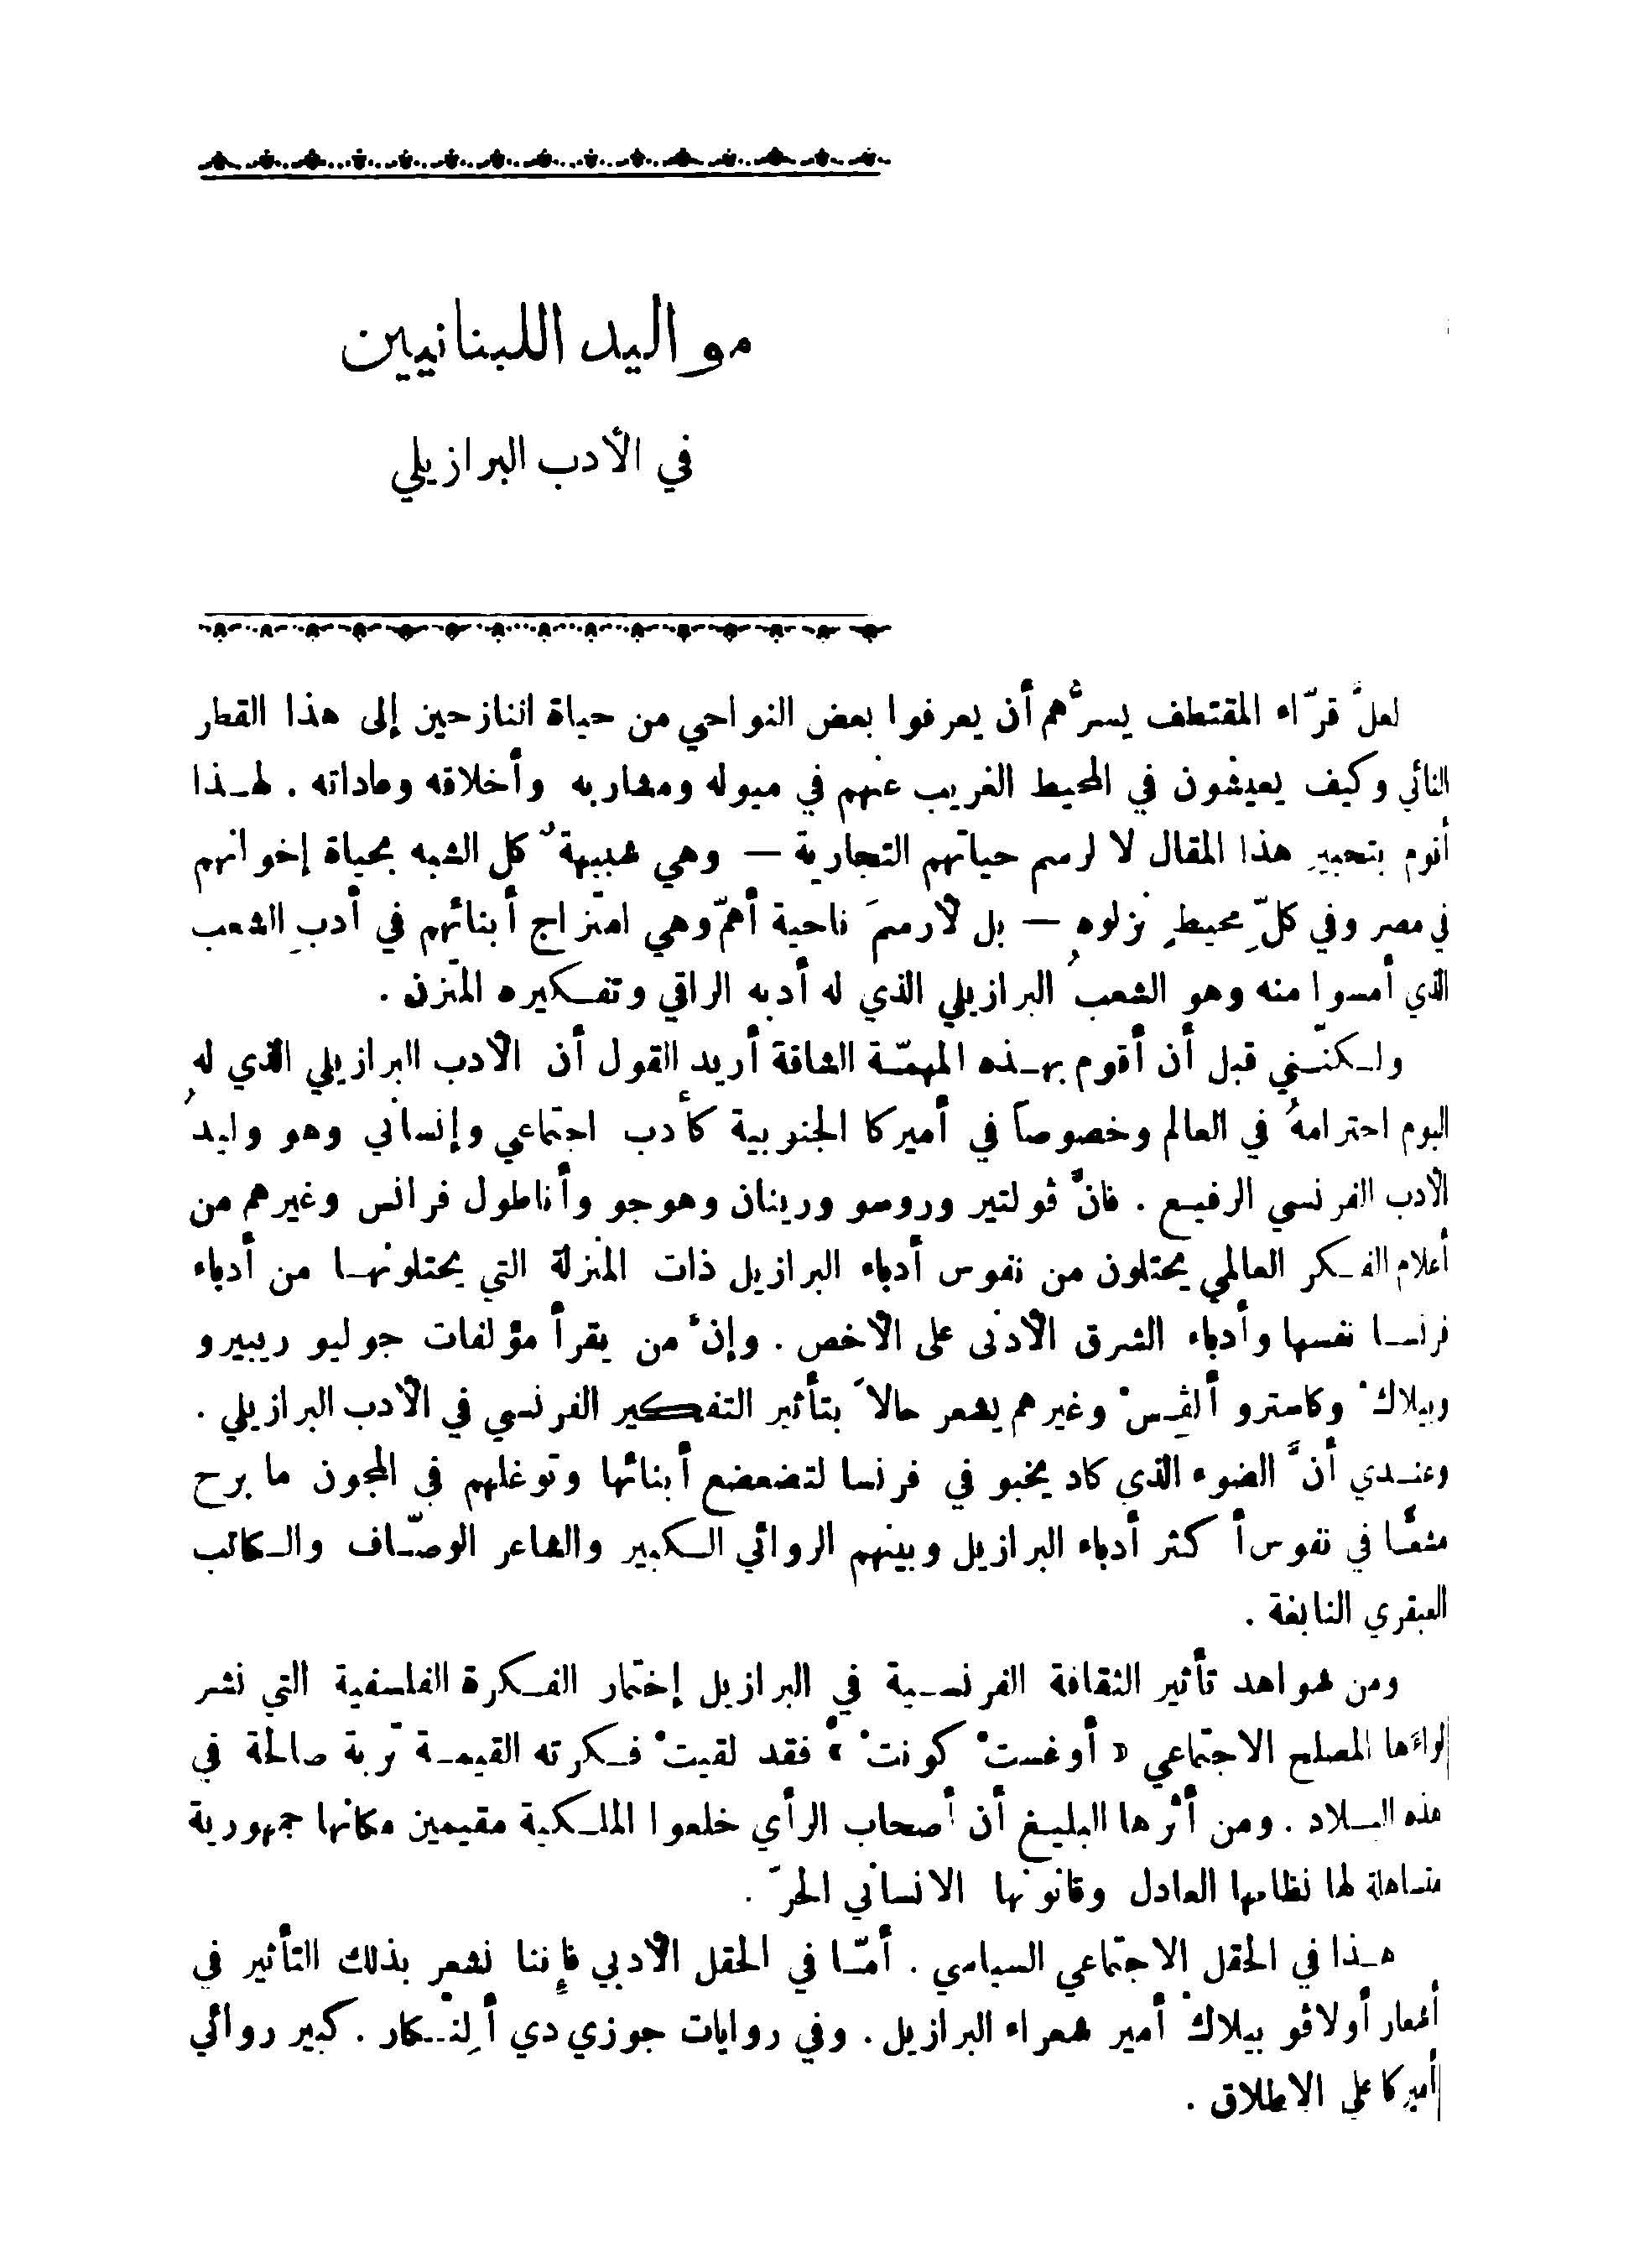 مواليد اللبنانيين
في الأدب البرازيلي
لعلَّ قرّاء المقتطف يسرُّهم أن يعرفوا بعض النواحي من حياة النازحين إلى هذا القطر
النائي وكيف يعيشون في المحيط الغريب عنهم في ميوله ومشاربه وأخلاقه وعاداته . لهذا
أقوم بتحبير هذا المقال لا لرسم حياتهم التجارية — وهي شبيهةٌ كل الشبه بحياة إخوانهم
في مصر وفي كلِّ محيطٍ نزلوه — بل لأرسمَ ناحية أهمّ وهي امتزاج أبنائهم في أدبِ الشعب
الذي أمسوا منه وهو الشعبُ البرازيلي الذي له أدبه الراقي وتفكيره المتّزن .
ولكنّني قبل أن أقوم بهذه المهمّة الشاقة أريد القول أن الأدب البرازيلي الذي له
اليوم احترامهُ في العالم وخصوصاً في أميركا الجنوبية كأدب اجتماعي وإنساني وهو وليدُ
الأدب الفرنسي الرفيع . فانَّ ڤولتير وروسو ورينان وهوجو وأناطول فرانس وغيرهم من
أعلام الفكر العالمي يحتلون من نفوس أدباء البرازيل ذات المنزلة التي يحتلونها من أدباء
فرنسا نفسها وأدباء الشرق الأدنى على الأخص . وإنْ من يقرأ مؤلفات جوليو ريبيرو
وبيلاكْ وكاسترو ألڤِسْ وغيرهم يشعر حالاً بتأثير التفكير الفرنسي في الأدب البرازيلي .
وعندي أنَّ الضوء الذي كاد يخبو في فرنسا لتضعضع أبنائها وتوغلهم في المجون ما برح
مشعًّا في نفوس أكثر أدباء البرازيل وبينهم الروائي الكبير والشاعر الوصّاف والكاتب
العبقري النابغة .
ومن شواهد تأثير الثقافة الفرنسية في البرازيل إختمار الفكرة الفلسفية التي نشر
لواءَها المصلح الاجتماعي « أوغستْ كونتْ » فقد لقيتْ فكرته القيمة تربة صالحة في
هذه البلاد . ومن أثرها البليغ أن أصحاب الرأي خلعوا الملكية مقيمين مكانها جمهورية
متساهلة لها نظامها العادل وقانونها الانساني الحرّ .
هذا في الحقل الاجتماعي السياسي . أمّا في الحقل الأدبي فإننا نشعر بذلك التأثير في
أشعار أولاڤو بيلاكْ أمير شعراء البرازيل . وفي روايات جوزي دي ألِنْكار . كبير روائي
أميركا على الاطلاق .